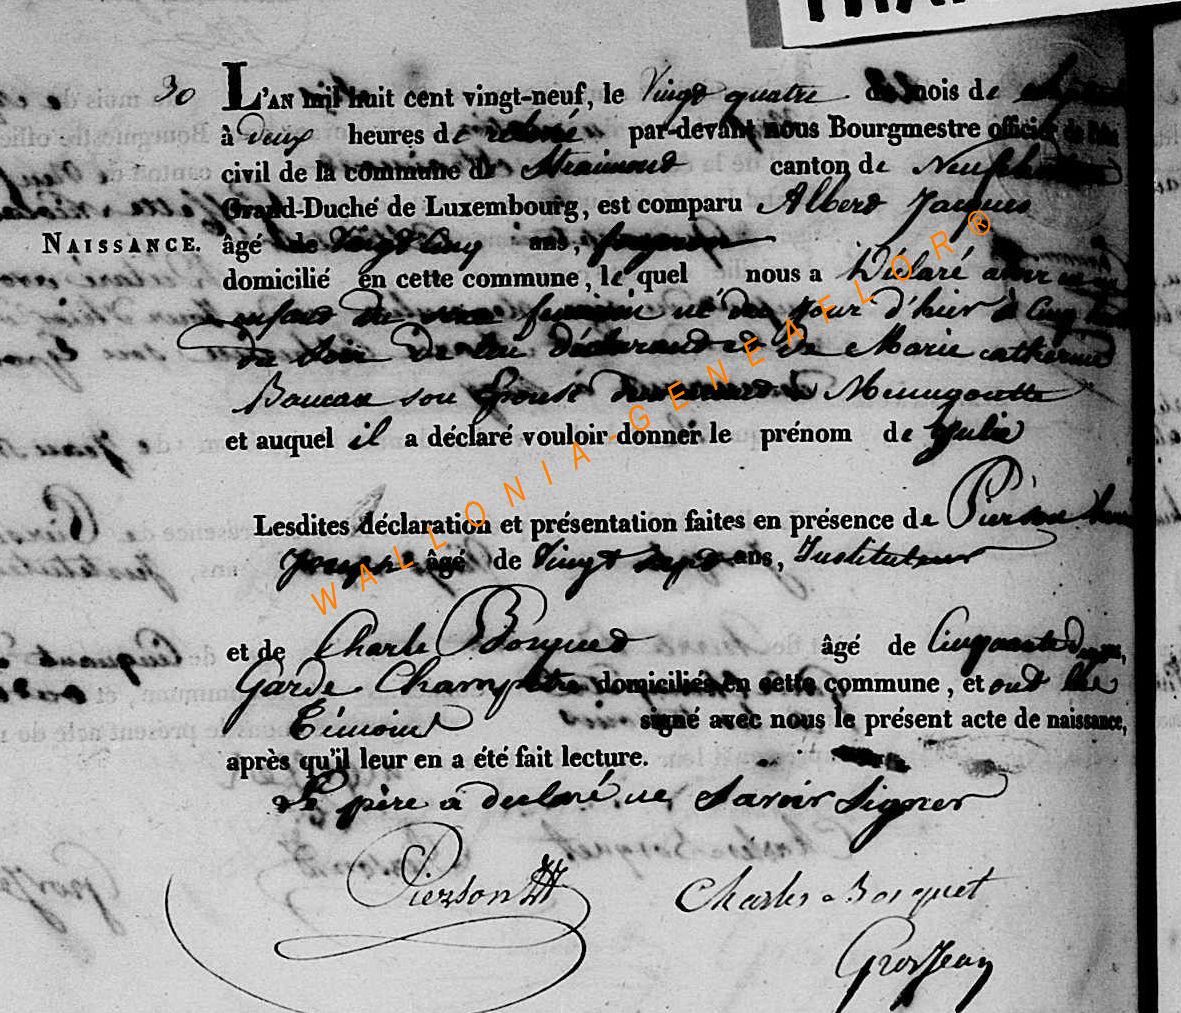 30
L'AN mil huit cent vingt-neuf, le Vingt quatre du mois de
à deux heures de relevée par-devant nous Bourgmestre officier de l'état
civil de la commune de Straimont canton de Neufchateau
Grand-Duché de Luxembourg, est comparu Albert Jacques
NAISSANCE.
âgé de Vingt Cinq ans,
domicilié en cette commune, le quel nous a Déclaré avoir
enfant du sexe feminin né du jour d'hier à Cinq
du soir de lui déclarant et de Marie catherine
son Epouse à Menugoutte
et auquel il a déclaré vouloir donner le prénom de Julie
Lesdites déclaration et présentation faites en présence de Pierson
Joseph âgé de Vingt sept ans, Instituteur
et de Charle Bosquet âgé de Cinquante
Garde Champetre domiciliés en cette commune, et ont les
Témoins signé avec nous le présent acte de naissance,
après qu'il leur en a été fait lecture.
Le père a declaré ne Savoir Signer
Pierson
Charles Bosquet
GrosJean
WALLONIA-GENEAFLOR®